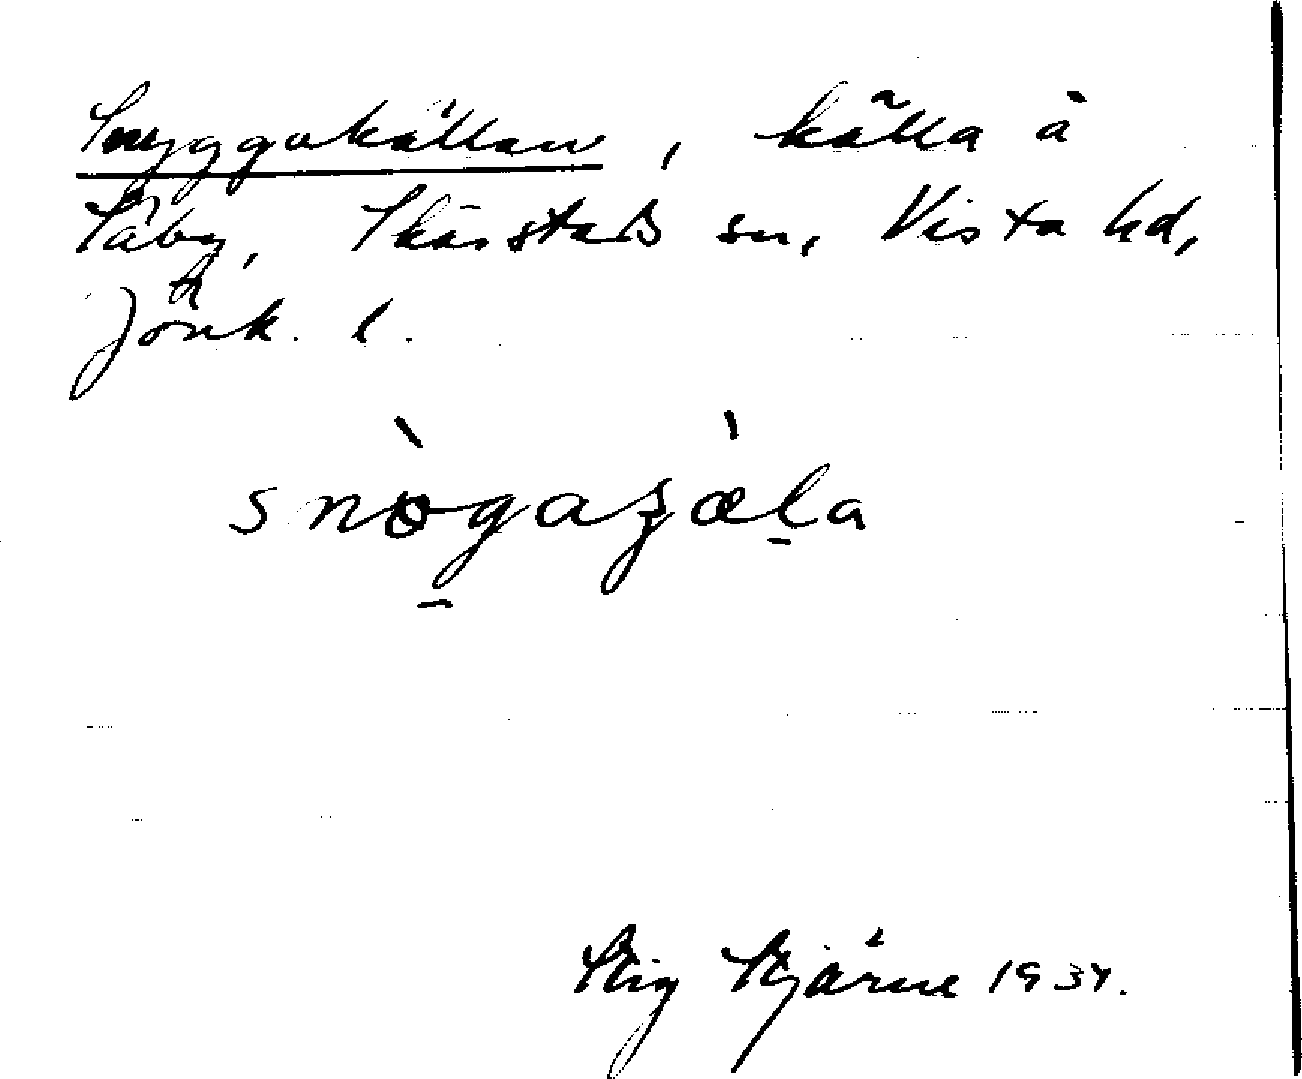 Snyggakällan, källa å
Säby, Skärstads sn, Vista hd,
Jönk. l.
snògaʒæ̀la
Stig Stjärne 1934.